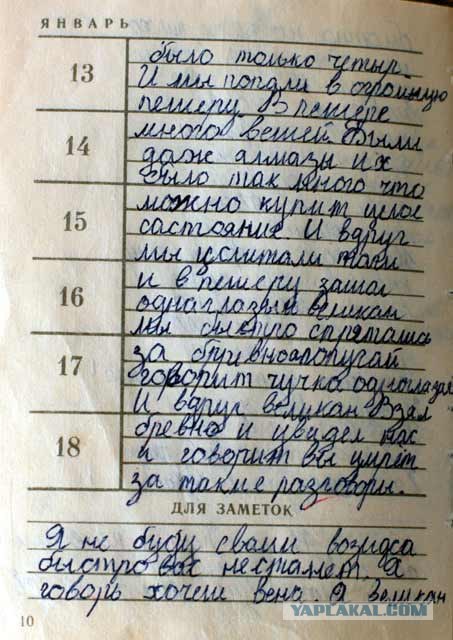 ЯНВАРЬ
13
было только четыр.
И мы попали в огромную
пещеру. В пещере
14
много вещей. Были
даж алмазы их
было так много что
15
можно купит целое
састояние. И вдруг
мы услитали
16
и в пещеру зашол
одноглазый великан
мы быстро спрятались
17
за бривно попугай
говорит чучка одноглазая
И вдруг великан Взял
18
бревно и увидел нас
и говорит вы умрет
за такие разговоры.
ДЛЯ ЗАМЕТОК
Я не буду свами возидса
быстро вас нестанет. Я
говорь хочеш вена. А Великан
10
YAPLAKAL.COM